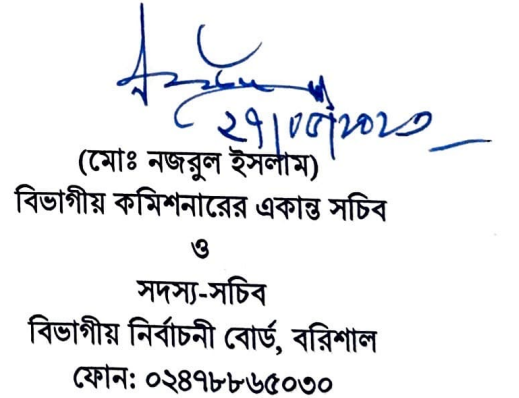 ২৭/০৫/২০২৩
(মোঃ নজরুল ইসলাম)
বিভাগীয় কমিশনারের একান্ত সচিব
ও
সদস্য-সচিব
বিভাগীয় নির্বাচনী বোর্ড, বরিশাল
ফোন: ০২৪৭৮৮৬৫০৩০